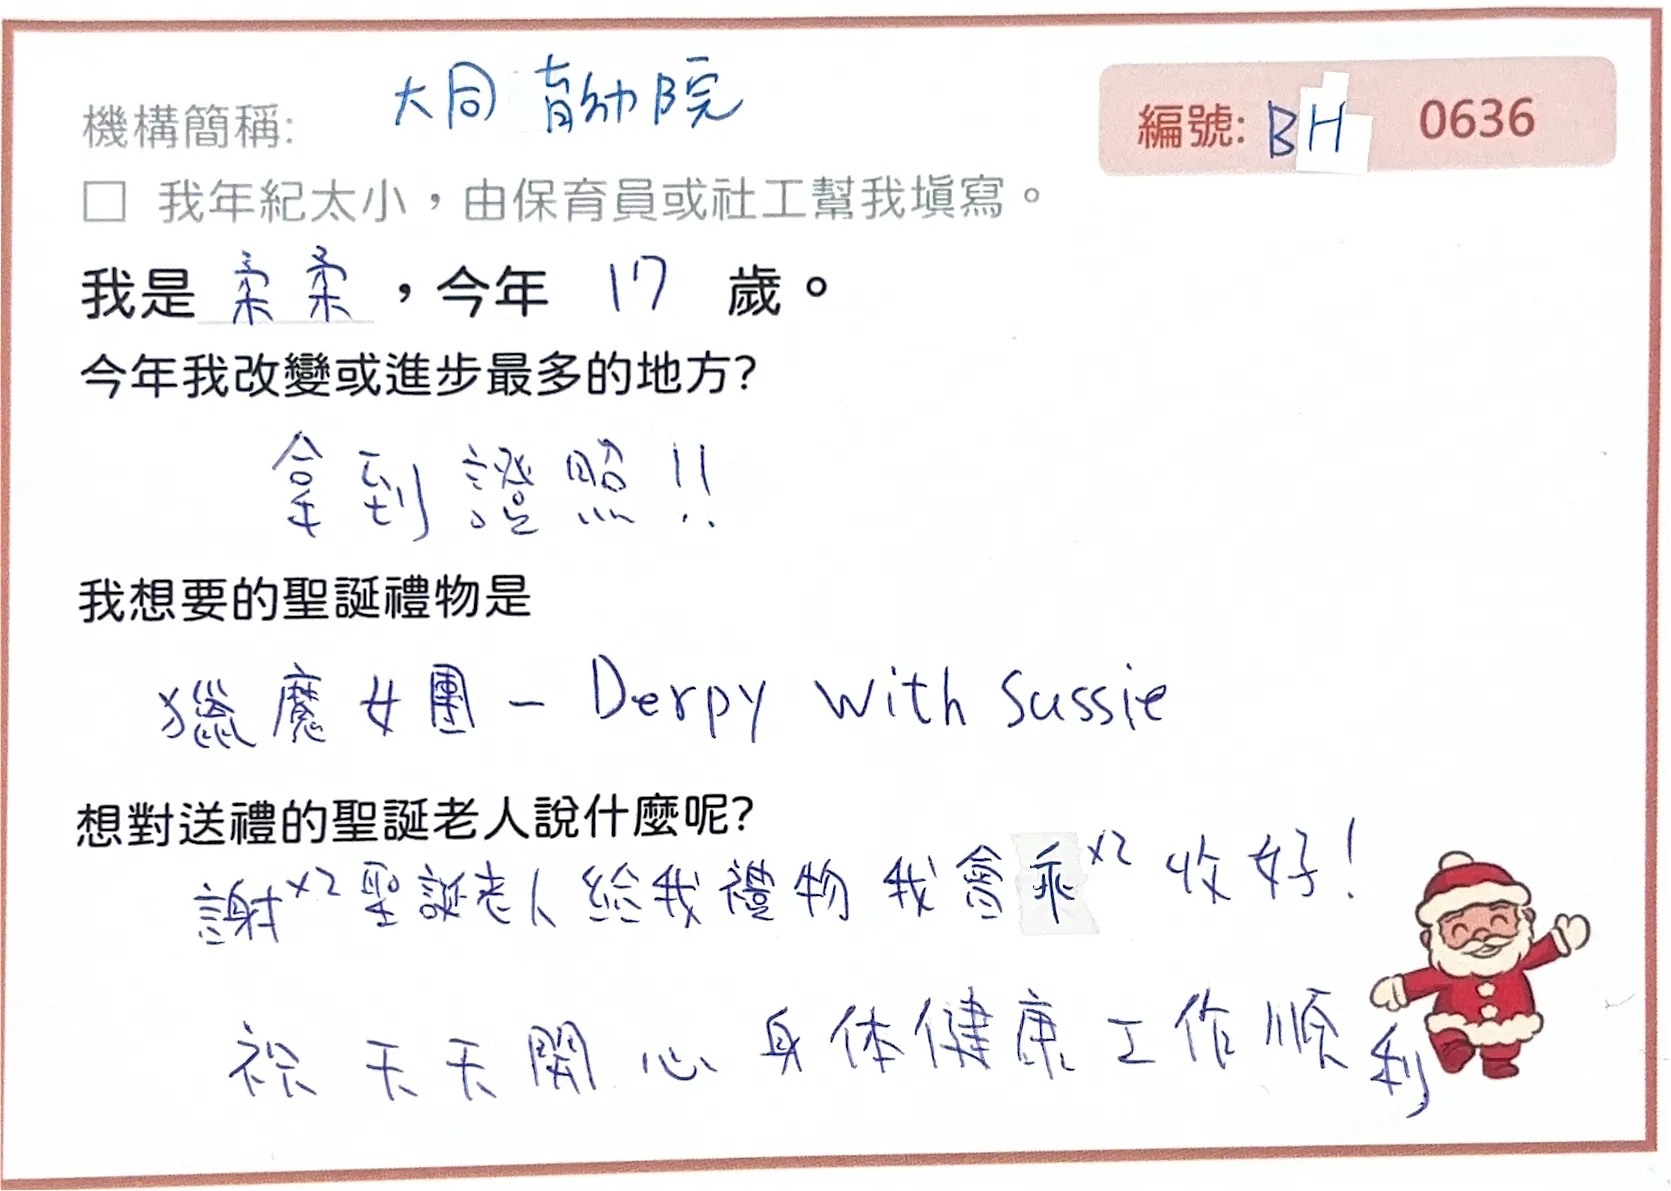 機構簡稱: 大同育幼院
編號: BH 0636
□ 我年紀太小，由保育員或社工幫我填寫。
我是 柔柔 ，今年 17 歲。
今年我改變或進步最多的地方?
拿到證照!!
我想要的聖誕禮物是
獵魔女團 - Derpy with Sussie
想對送禮的聖誕老人說什麼呢?
謝x2聖誕老人給我禮物 我會乖x2收好!
祝天天開心 身体健康 工作順利